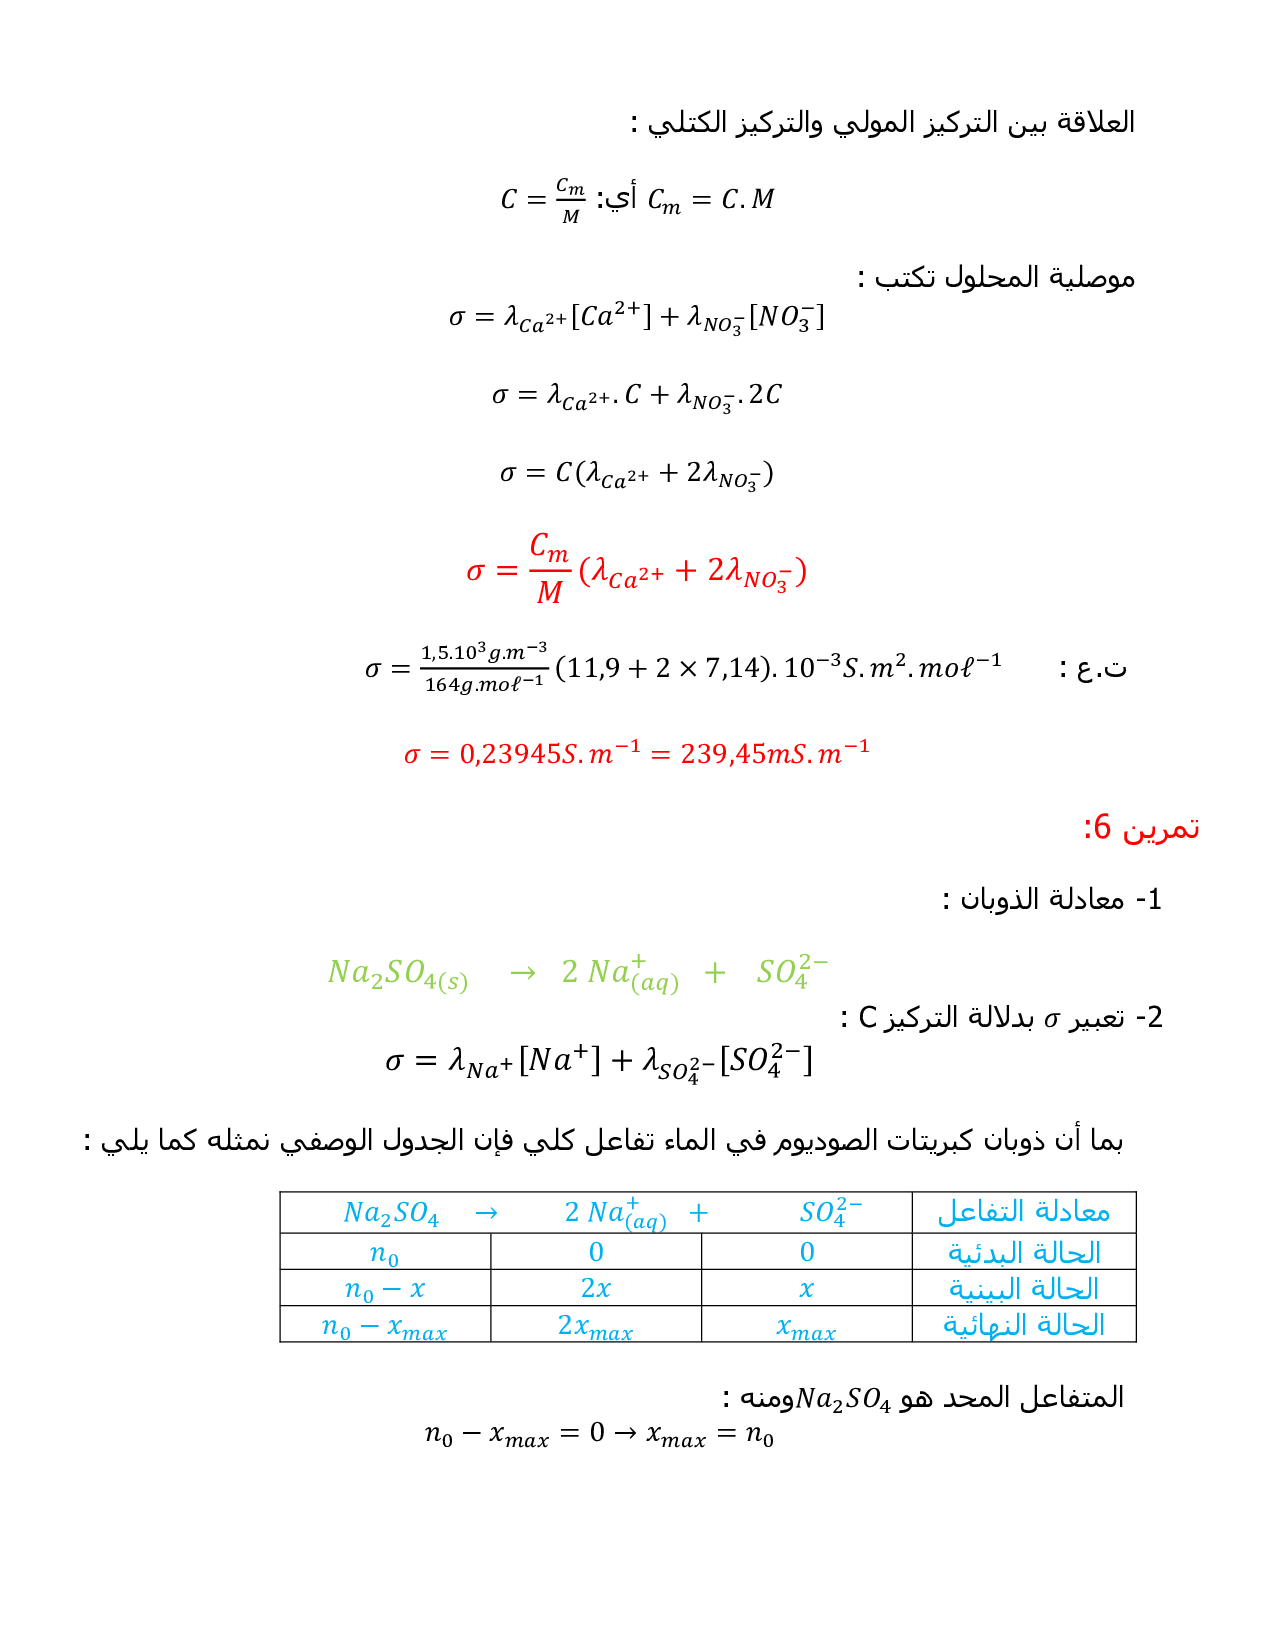 العلاقة بين التركيز المولي والتركيز الكتلي :
Cₘ = C. M أي: C = Cₘ/M
موصلية المحلول تكتب :
σ = λ_{Ca²⁺}[Ca²⁺] + λ_{NO₃⁻}[NO₃⁻]
σ = λ_{Ca²⁺}. C + λ_{NO₃⁻}. 2C
σ = C(λ_{Ca²⁺} + 2λ_{NO₃⁻})
σ = Cₘ/M (λ_{Ca²⁺} + 2λ_{NO₃⁻})
ت.ع : σ = 1,5.10³g.m⁻³/164g.moℓ⁻¹ (11,9 + 2 × 7,14). 10⁻³S. m². moℓ⁻¹
σ = 0,23945S. m⁻¹ = 239,45mS. m⁻¹
تمرين 6:
1- معادلة الذوبان :
Na₂SO₄₍ₛ₎ → 2 Na⁺_{(aq)} + SO₄²⁻
2- تعبير σ بدلالة التركيز C :
σ = λ_{Na⁺}[Na⁺] + λ_{SO₄²⁻}[SO₄²⁻]
بما أن ذوبان كبريتات الصوديوم في الماء تفاعل كلي فإن الجدول الوصفي نمثله كما يلي :
معادلة التفاعل Na₂SO₄ → 2 Na⁺_{(aq)} + SO₄²⁻
الحالة البدئية n₀ 0 0
الحالة البينية n₀ − x 2x x
الحالة النهائية n₀ − x_{max} 2x_{max} x_{max}
المتفاعل المحد هو Na₂SO₄ ومنه :
n₀ − x_{max} = 0 → x_{max} = n₀